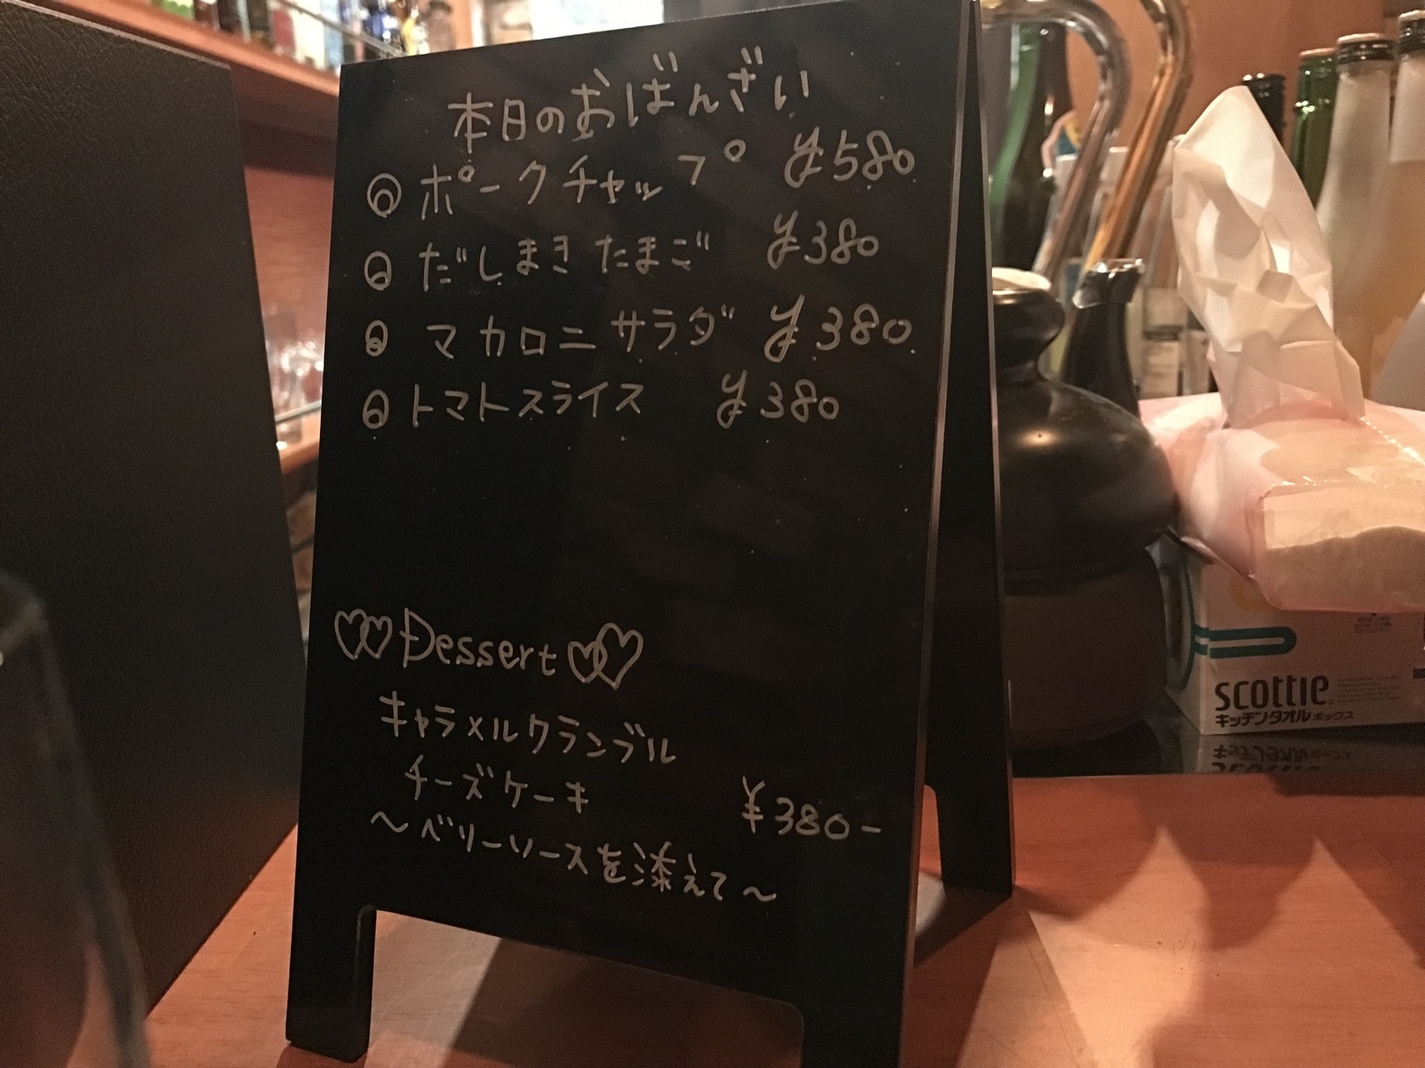 本日のおばんざい
◎ ポークチャップ ¥580
◎ だしまきたまご ¥380
◎ マカロニサラダ ¥380
◎ トマトスライス ¥380
♡♡Dessert♡♡
キャラメルクランブル
チーズケーキ ¥380-
~ベリーソースを添えて~
scottie
キッチンタオル ボックス